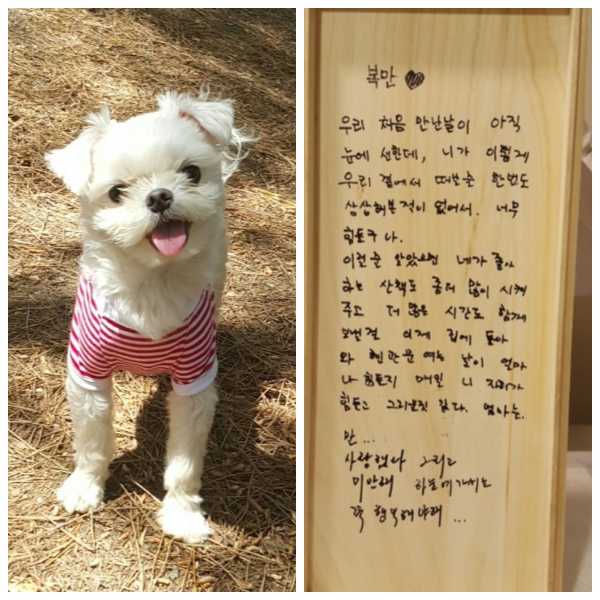 복만 ♥
우리 처음 만난날이 아직
눈에 선한데, 니가 이렇게
우리 곁에서 떠날줄 한번도
상상해본적이 없어서. 너무
힘들구나.
이런줄 알았으면 네가 좋아
하는 산책도 좀더 많이 시켜
주고 더 많은 시간도 함께
보낼걸 이제 집에 돌아
와 현관문 여는 날이 얼마
나 힘든지 매일 니 자리가
힘들고 그리울것 같다. 엄마는.
만...
사랑했다 그리고
미안해 하늘에 가서는
꼭 행복해야해 ...